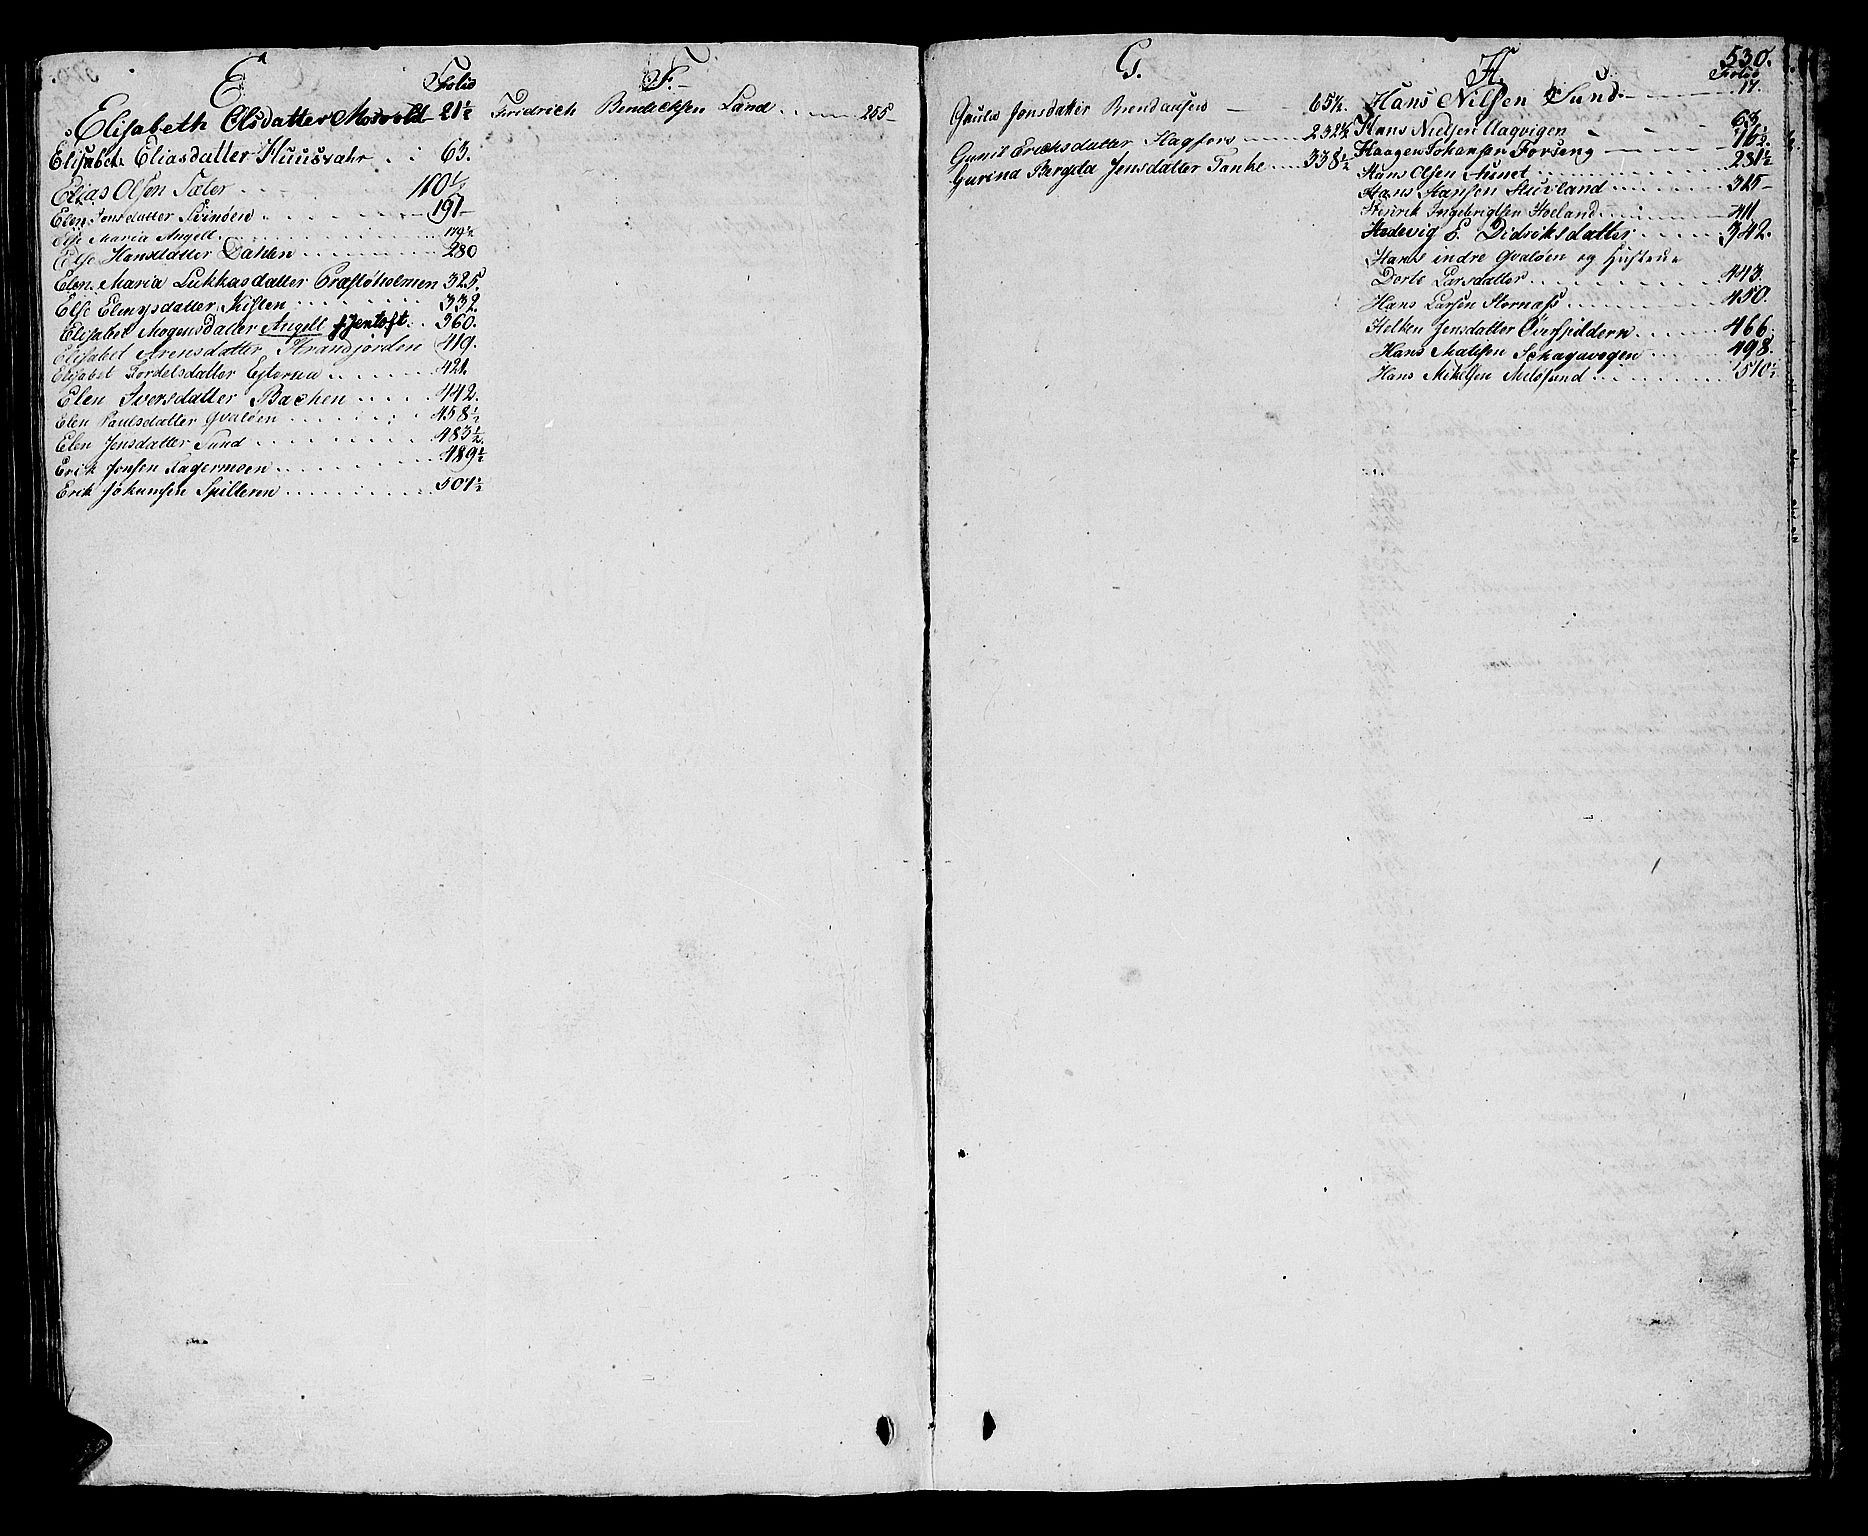 E
Folio
Elisabeth Olsdatter Mosvold 21½
Elisabet Eliasdatter Huusvahr . . : 63.
Elias Olsen Sæter . . . 110½
Elen Jensdatter Svinöen . . . 191
Else Maria Angell . . . 179½
Else Hansdatter Dahlen . . . 280
Elen Maria Lukkasdatter Præstöholmen 325.
Else Elingsdatter Kisten . . . 332.
Elisabet Mogensdatter Angell f. Jentoft . . 360.
Elisabet Arensdatter Strandjorden 419.
Elisabet Tordelsdatter Ejterna . . . 421.
Elen Iversdatter Bachen . . . 442.
Elen Paulsdatter Qvalöen . . . 458½
Elen Jensdatter Sund . . . 483½
Erik Jonsen Fagermoen . . . 489½
Erik Johansen Spilderen . . . 501½
F.
Fridrich Bendicksen Land . . . 255
G.
Jonsdatter 65½.
Gunil Ericksdatter Hagfors . . . 232½
Gurina Bergita Jensdatter Tanke . . . 338½
530.
H.
Folio
Hans Nilsen Sund . . . 17.
Hans Nielsen Aagvigen 63
Haagen Johansen Forseng 76½
Hans Olsen Aunet . . . 281½
Hans Hansen Huvland . . . 325
Henrik Ingebrigtsen Hoeland . . . 411
Hedevig E. Didriksdatter . . . 342.
Hans indre Qvalöen og Hustrue
Dorte Larsdatter . . . 443.
Hans Larsen Stornæss . . . 450.
Helken Jensdatter Övrspildern . . . 466.
Hans Matisen Schagavogen . . . 498.
Hans Mikelsen Melösund . . . 510½